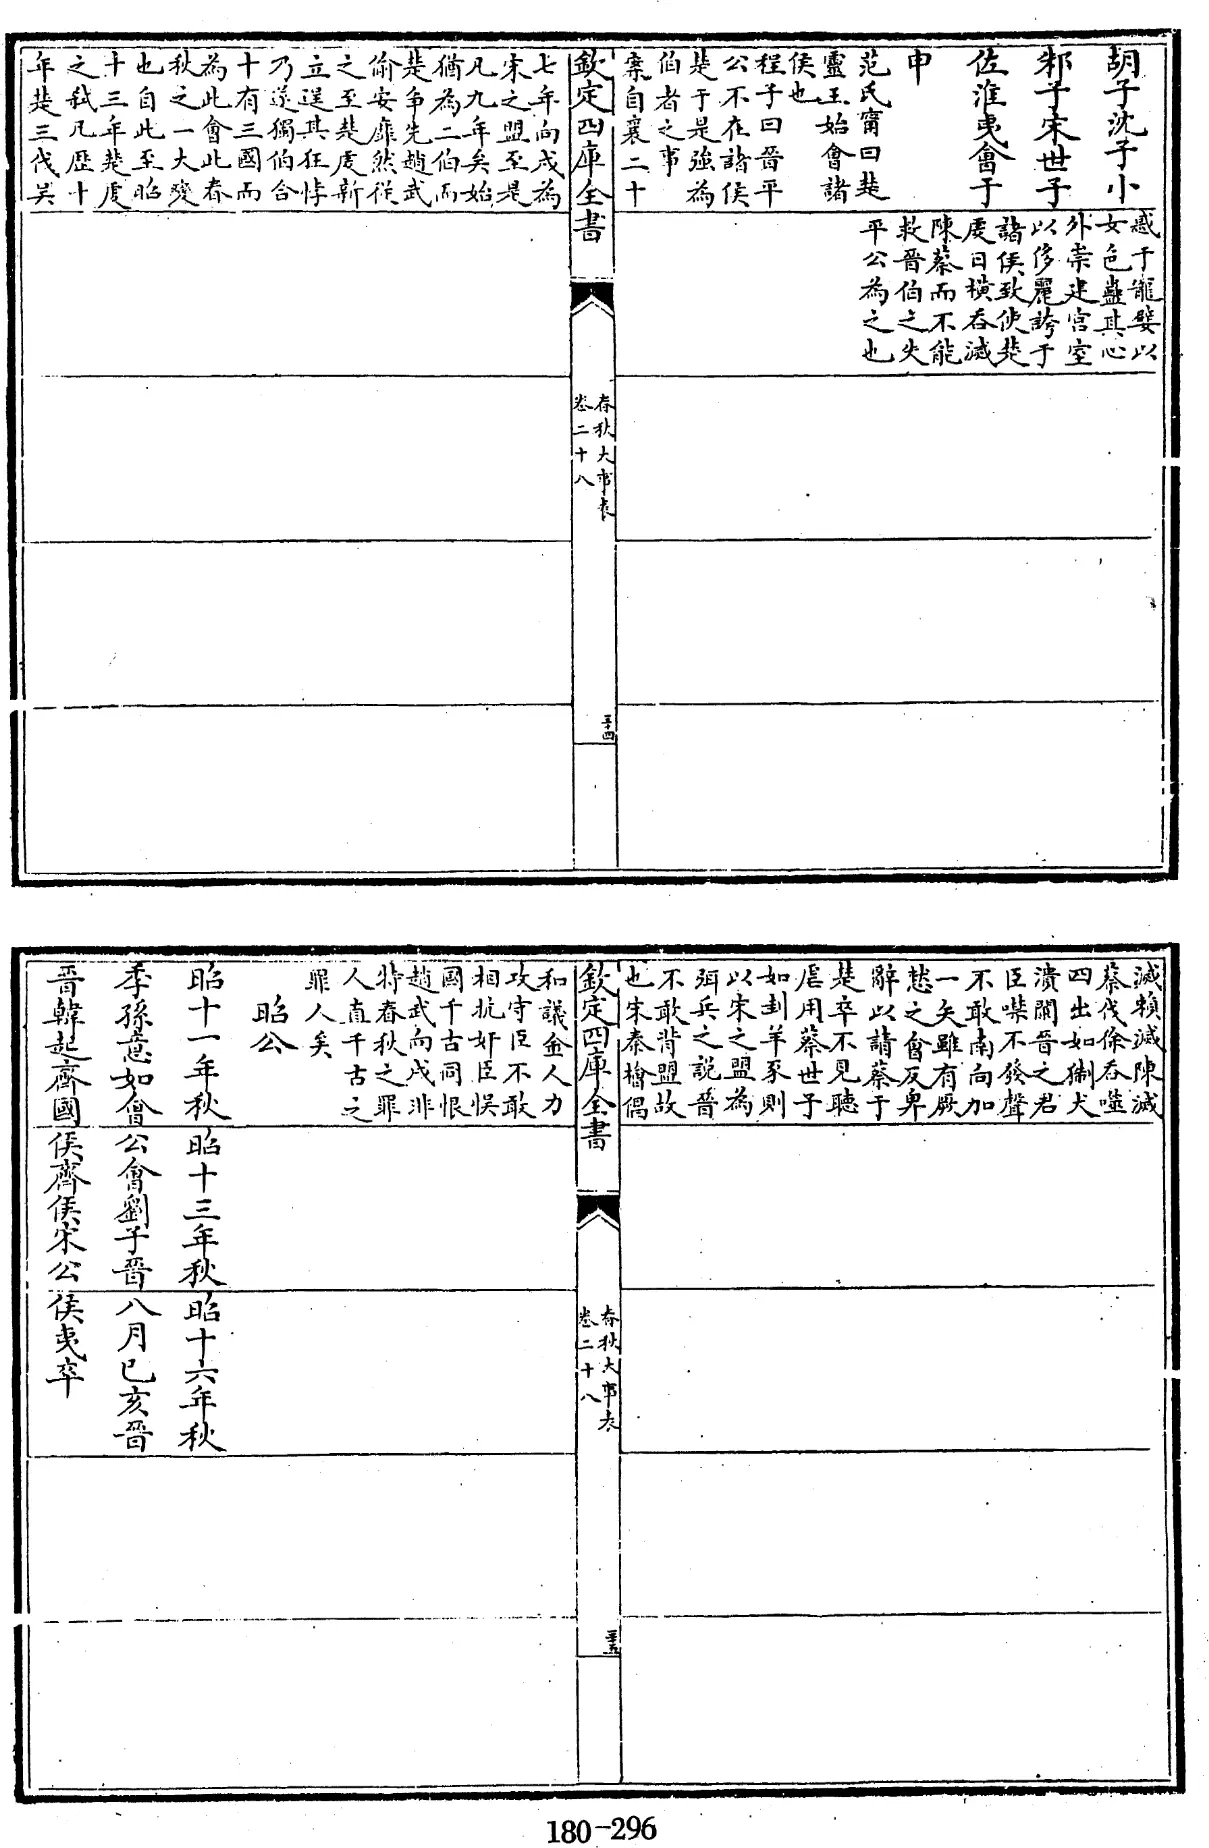 胡子沈子小
邾子宋世子
佐淮夷會于
申
范氏甯曰楚
靈王始會諸
侯也
程子曰晉平
公不在諸侯
楚于是強為
伯者之事
案自襄二十
惑于寵嬖以
女色蠱其心
外崇建宮室
以侈麗誇于
諸侯致使楚
虔日橫吞滅
陳蔡而不能
救晉伯之失
平公為之也
欽定四庫全書
春秋大事表
卷二十八
三十四
七年向戌為
宋之盟至是
凡九年矣始
猶為二伯而
楚爭先趙武
偷安靡然從
之至楚虔新
立逞其狂悖
乃遂獨伯合
十有三國而
為此會此春
秋之一大變
也自此至昭
十三年楚虔
之弒凡歷十
年楚三伐吳
滅賴滅陳滅
蔡伐徐吞噬
四出如猘犬
潰闌晉之君
臣噤不發聲
不敢南向加
一矢雖有厥
憖之會反卑
辭以請蔡于
楚卒不見聽
虐用蔡世子
如刲羊豕則
以宋之盟為
弭兵之說晉
不敢背盟故
也宋秦檜偶
欽定四庫全書
春秋大事表
卷二十八
三十五
和議金人力
攻守臣不敢
相抗奸臣悞
國千古同恨
趙武向戌非
特春秋之罪
人直千古之
罪人矣
昭公
昭十一年秋
季孫意如會
晉韓起齊國
昭十三年秋
公會劉子晉
侯齊侯宋公
昭十六年秋
八月己亥晉
侯夷卒
180-296